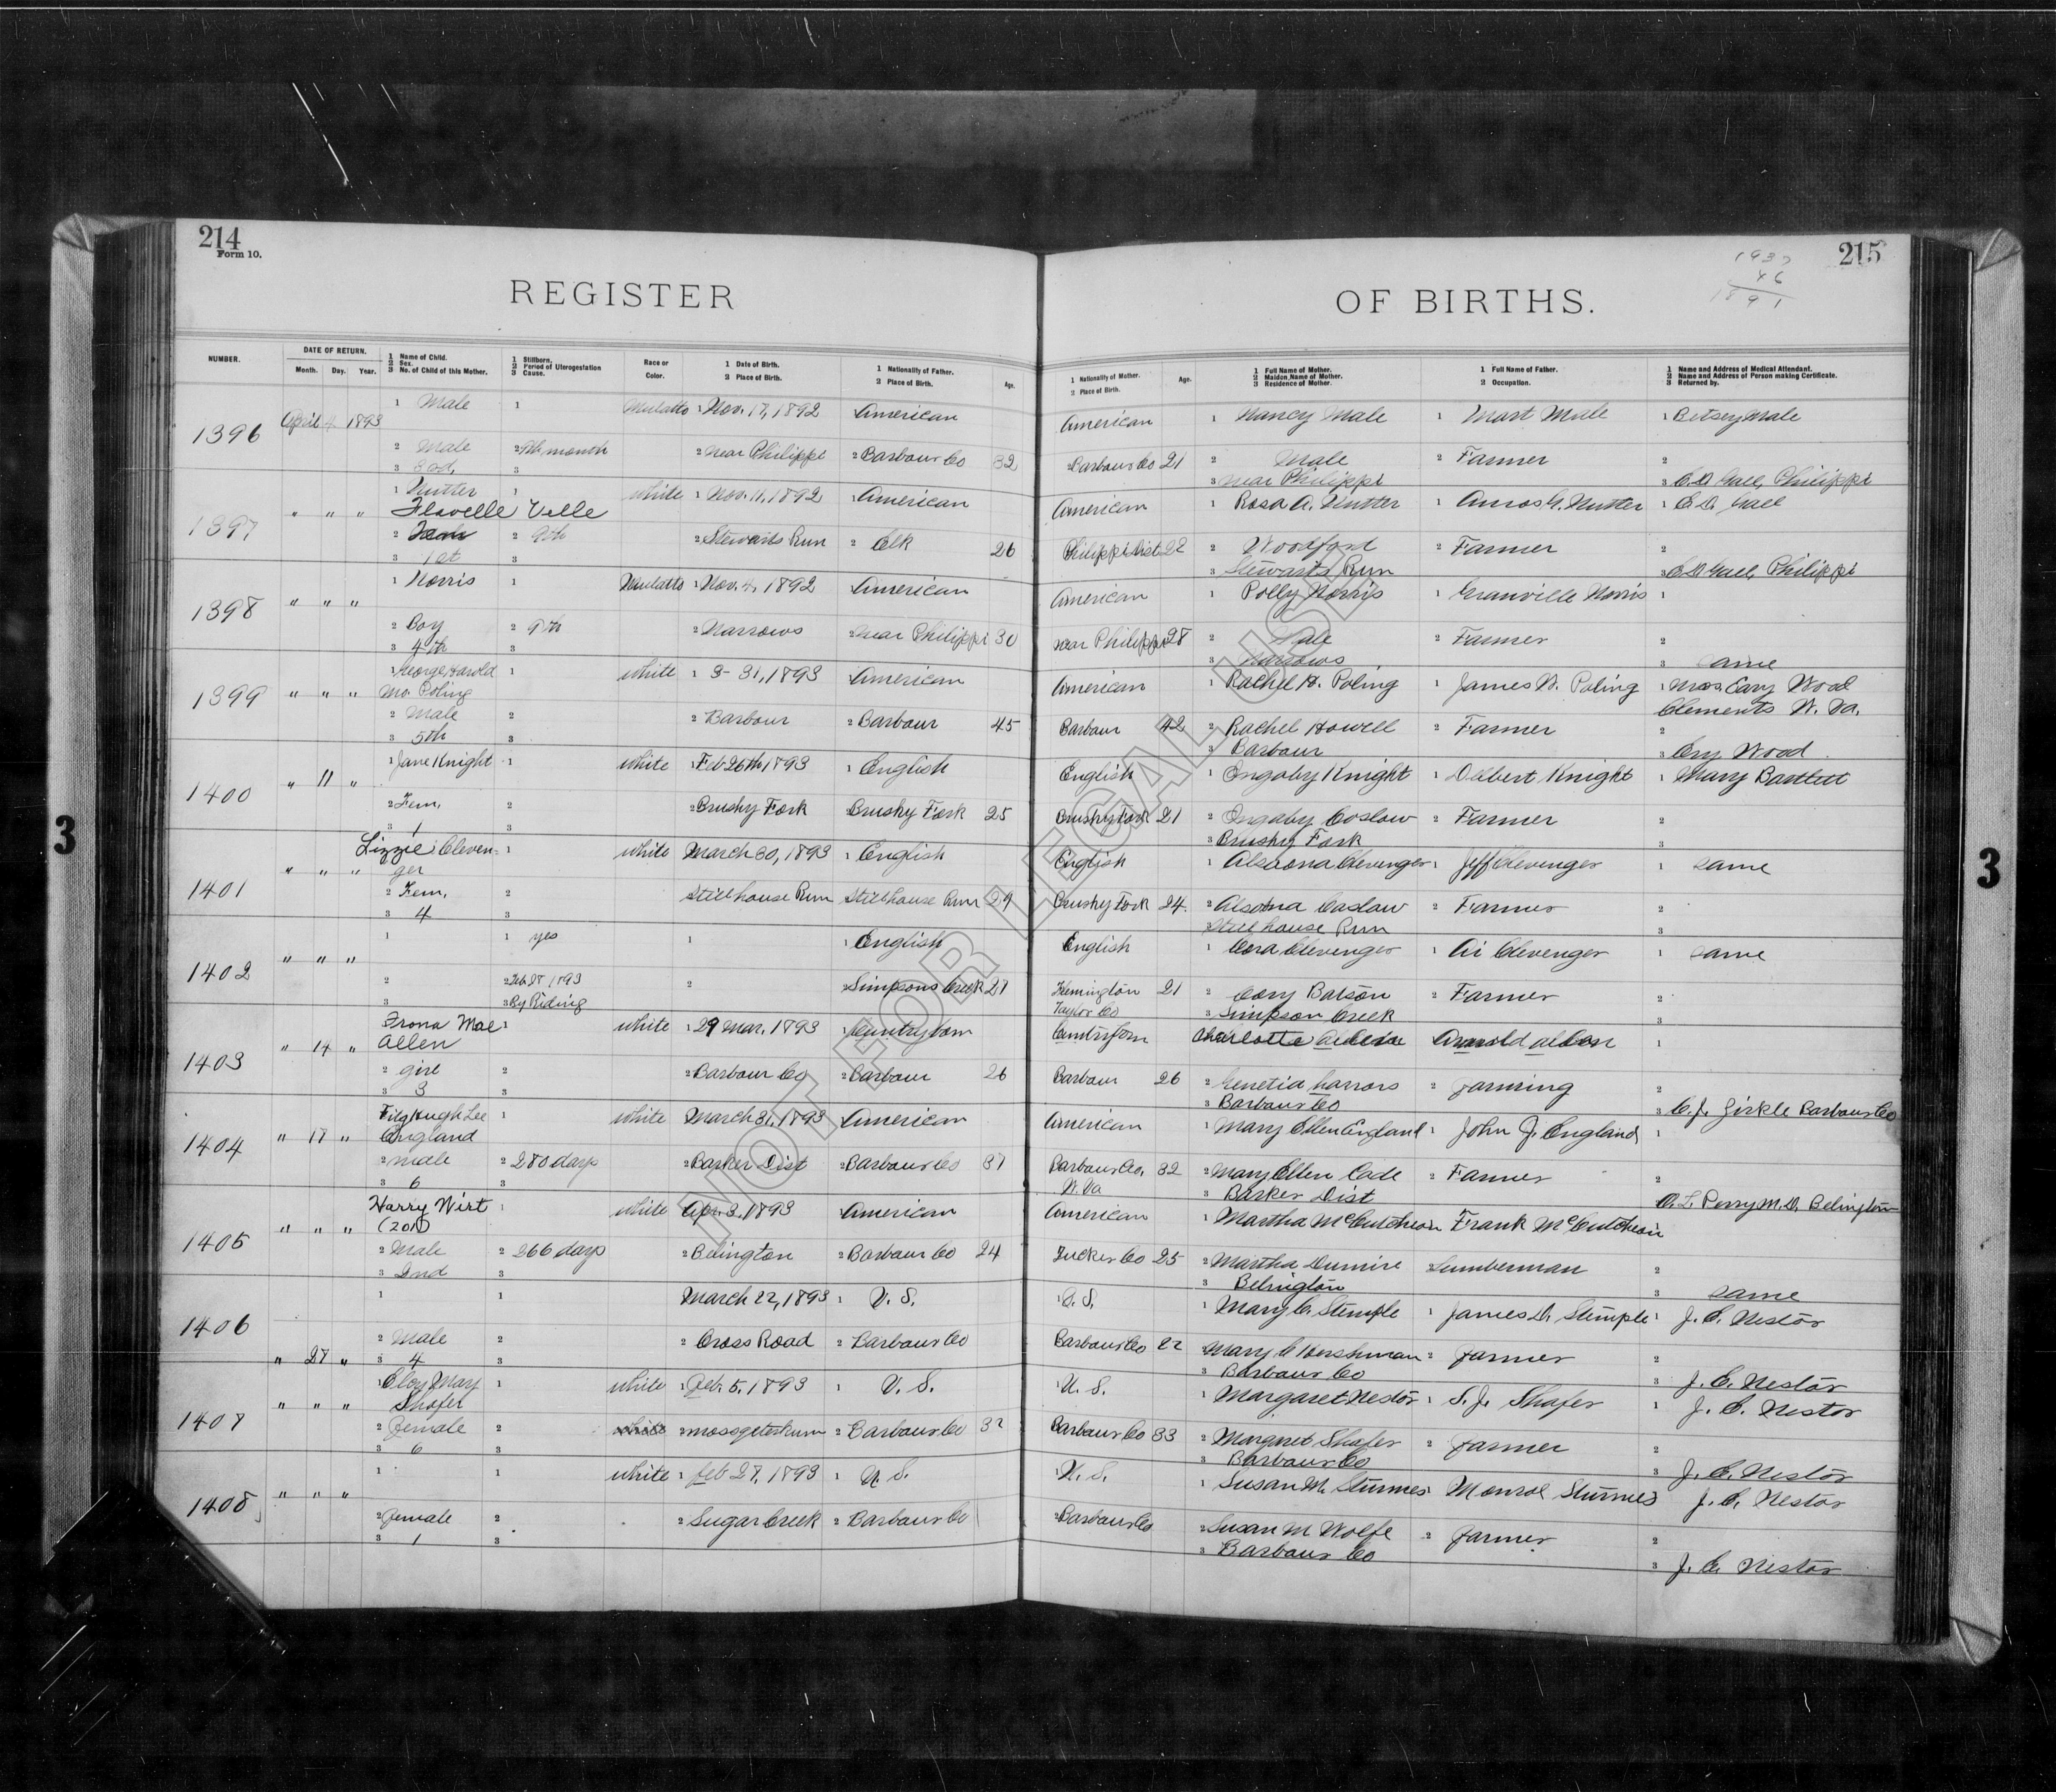 214
Form 10.
REGISTER
OF BIRTHS.
215
193
46
1891
NUMBER.
DATE OF RETURN.
Month. Day. Year.
1 Name of Child.
2 Sex.
3 No. of Child of this Mother.
1 Stillborn,
2 Period of Uterogestation
3 Cause.
Race or
Color.
1 Date of Birth.
2 Place of Birth.
1 Nationality of Father.
2 Place of Birth.
Age.
1 Nationality of Mother.
2 Place of Birth.
Age.
1 Full Name of Mother.
2 Maiden Name of Mother.
3 Residence of Mother.
1 Full Name of Father.
2 Occupation.
1 Name and Address of Medical Attendant.
2 Name and Address of Person making Certificate.
3 Returned by.
1396 April 4 1893 1 Male 1 Mulatto 1 Nov. 17, 1892 American American 1 Nancy Male 1 Mart Male 1 Betsey Male
2 Male 2 9th month 2 near Philippi 2 Barbour Co 32 2 Barbour Co 21 2 Male 2 Farmer 2
3 3rd 3 3 near Philippi 3 C.D. Gall, Philippi
1397 " " " 1 Nutter 1 white 1 Nov. 11, 1892 American American 1 Rosa A. Nutter 1 Amos G. Nutter 1 C.D. Gall
Flavelle Velle
2 Fem 2 9th 2 Stewarts Run 2 Elk 26 Philippi Dist 22 2 Woodford 2 Farmer 2
3 1st 3 3 Stewarts Run 3 C.D. Gall, Philippi
1398 " " " 1 Norris 1 Mulatto 1 Nov. 4, 1892 American American 1 Polly Norris 1 Granville Norris 1
2 Boy 2 9th 2 Narrows 2 near Philippi 30 near Philippi 28 2 Male 2 Farmer 2
3 4th 3 3 Narrows 3 same
1399 " " " 1 George Harold 1 white 1 3-31, 1893 American American 1 Rachel H. Poling 1 James W. Poling 1 Mrs. Cary Wood
Mc Poling Clements W. Va.
2 Male 2 2 Barbour 2 Barbour 45 Barbour 42 2 Rachel Howell 2 Farmer 2
3 5th 3 3 Barbour 3 Cry Wood
1400 " 11 " 1 Jane Knight 1 white 1 Feb 26th 1893 1 English English 1 Ongaby Knight 1 Delbert Knight 1 Mary Bartlett
2 Fem. 2 2 Brushy Fork Brushy Fork 25 Brushy Fork 21 2 Ongaby Coslow 2 Farmer 2
3 1 3 3 Brushy Fork 3
1401 " " " Lizzie Cleven- 1 white March 30, 1893 1 English English 1 Alsaona Clevenger 1 Jeff Clevenger 1 same
ger
2 Fem. 2 Stillhouse Run Stillhouse Run 29 Brushy Fork 24 2 Alsona Coslow 2 Farmer 2
3 4 3 Still house Run 3
1402 " " " 1 1 yes 1 1 English English 1 Cora Clevenger 1 Ai Clevenger 1 same
2 2 Feb 28 1893 2 2 Simpsons Creek 27 Flemington 21 2 Cory Batson 2 Farmer 2
3 3 By Riding Taylor Co 3 Simpson Creek 3
1403 " 14 " Frona Mae 1 white 1 29 Mar. 1893 1 Country born Country born Charlotte Allen Arnold Allen 1
Allen
2 girl 2 2 Barbour Co 2 Barbour 26 Barbour 26 2 Genetia 2 farming 2
3 3 3 3 Barbour Co 3 C.J. Zirkle Barbour Co
1404 " 17 " Fitzhugh Lee 1 white March 31, 1893 American American 1 Mary Ellen England 1 John J. England 1
England
2 male 2 280 days 2 Barker Dist 2 Barbour Co 37 Barbour Co. 32 2 Mary Ellen Cade 2 Farmer 2
3 6 3 W. Va 3 Barker Dist O.L. Perry M.D. Belington
1405 " " " Harry Wirt 1 white Apr. 3, 1893 American American 1 Martha McCutcheon Frank McCutcheon
(201)
2 Male 2 266 days 2 Belington 2 Barbour Co 24 Tucker Co 25 2 Martha Dumire Lumberman 2
3 2nd 3 3 Belington 3 same
1406 1 1 March 22, 1893 1 U. S. 1 U. S. 1 Mary C. Stemple 1 James D. Stemple 1 J. C. Nestor
2 Male 2 2 Cross Road 2 Barbour Co Barbour Co 22 Mary C Hershman 2 farmer 2
" 27 " 3 4 3 3 Barbour Co 3 J. C. Nestor
1407 " " " 1 Cloy May 1 white 1 Feb. 5, 1893 1 U. S. 1 U. S. 1 Margaret Nestor 1 S. J. Shafer 1 J. C. Nestor
Shafer
2 Female 2 white 2 2 Barbour Co 32 Barbour Co 33 2 Margaret Shafer 2 farmer 2
3 6 3 3 Barbour Co 3 J. C. Nestor
1408 " " " 1 1 white 1 Feb 27, 1893 1 U. S. 1 U. S. 1 Susan M. Sturmes 1 Monroe Sturmes J. C. Nestor
2 Female 2 2 Sugar Creek 2 Barbour Co 2 Barbour Co 2 Susan M Wolfe 2 farmer 2
3 1 3 3 Barbour Co 3 J. C. Nestor
3
3
NOT FOR LEGAL USE